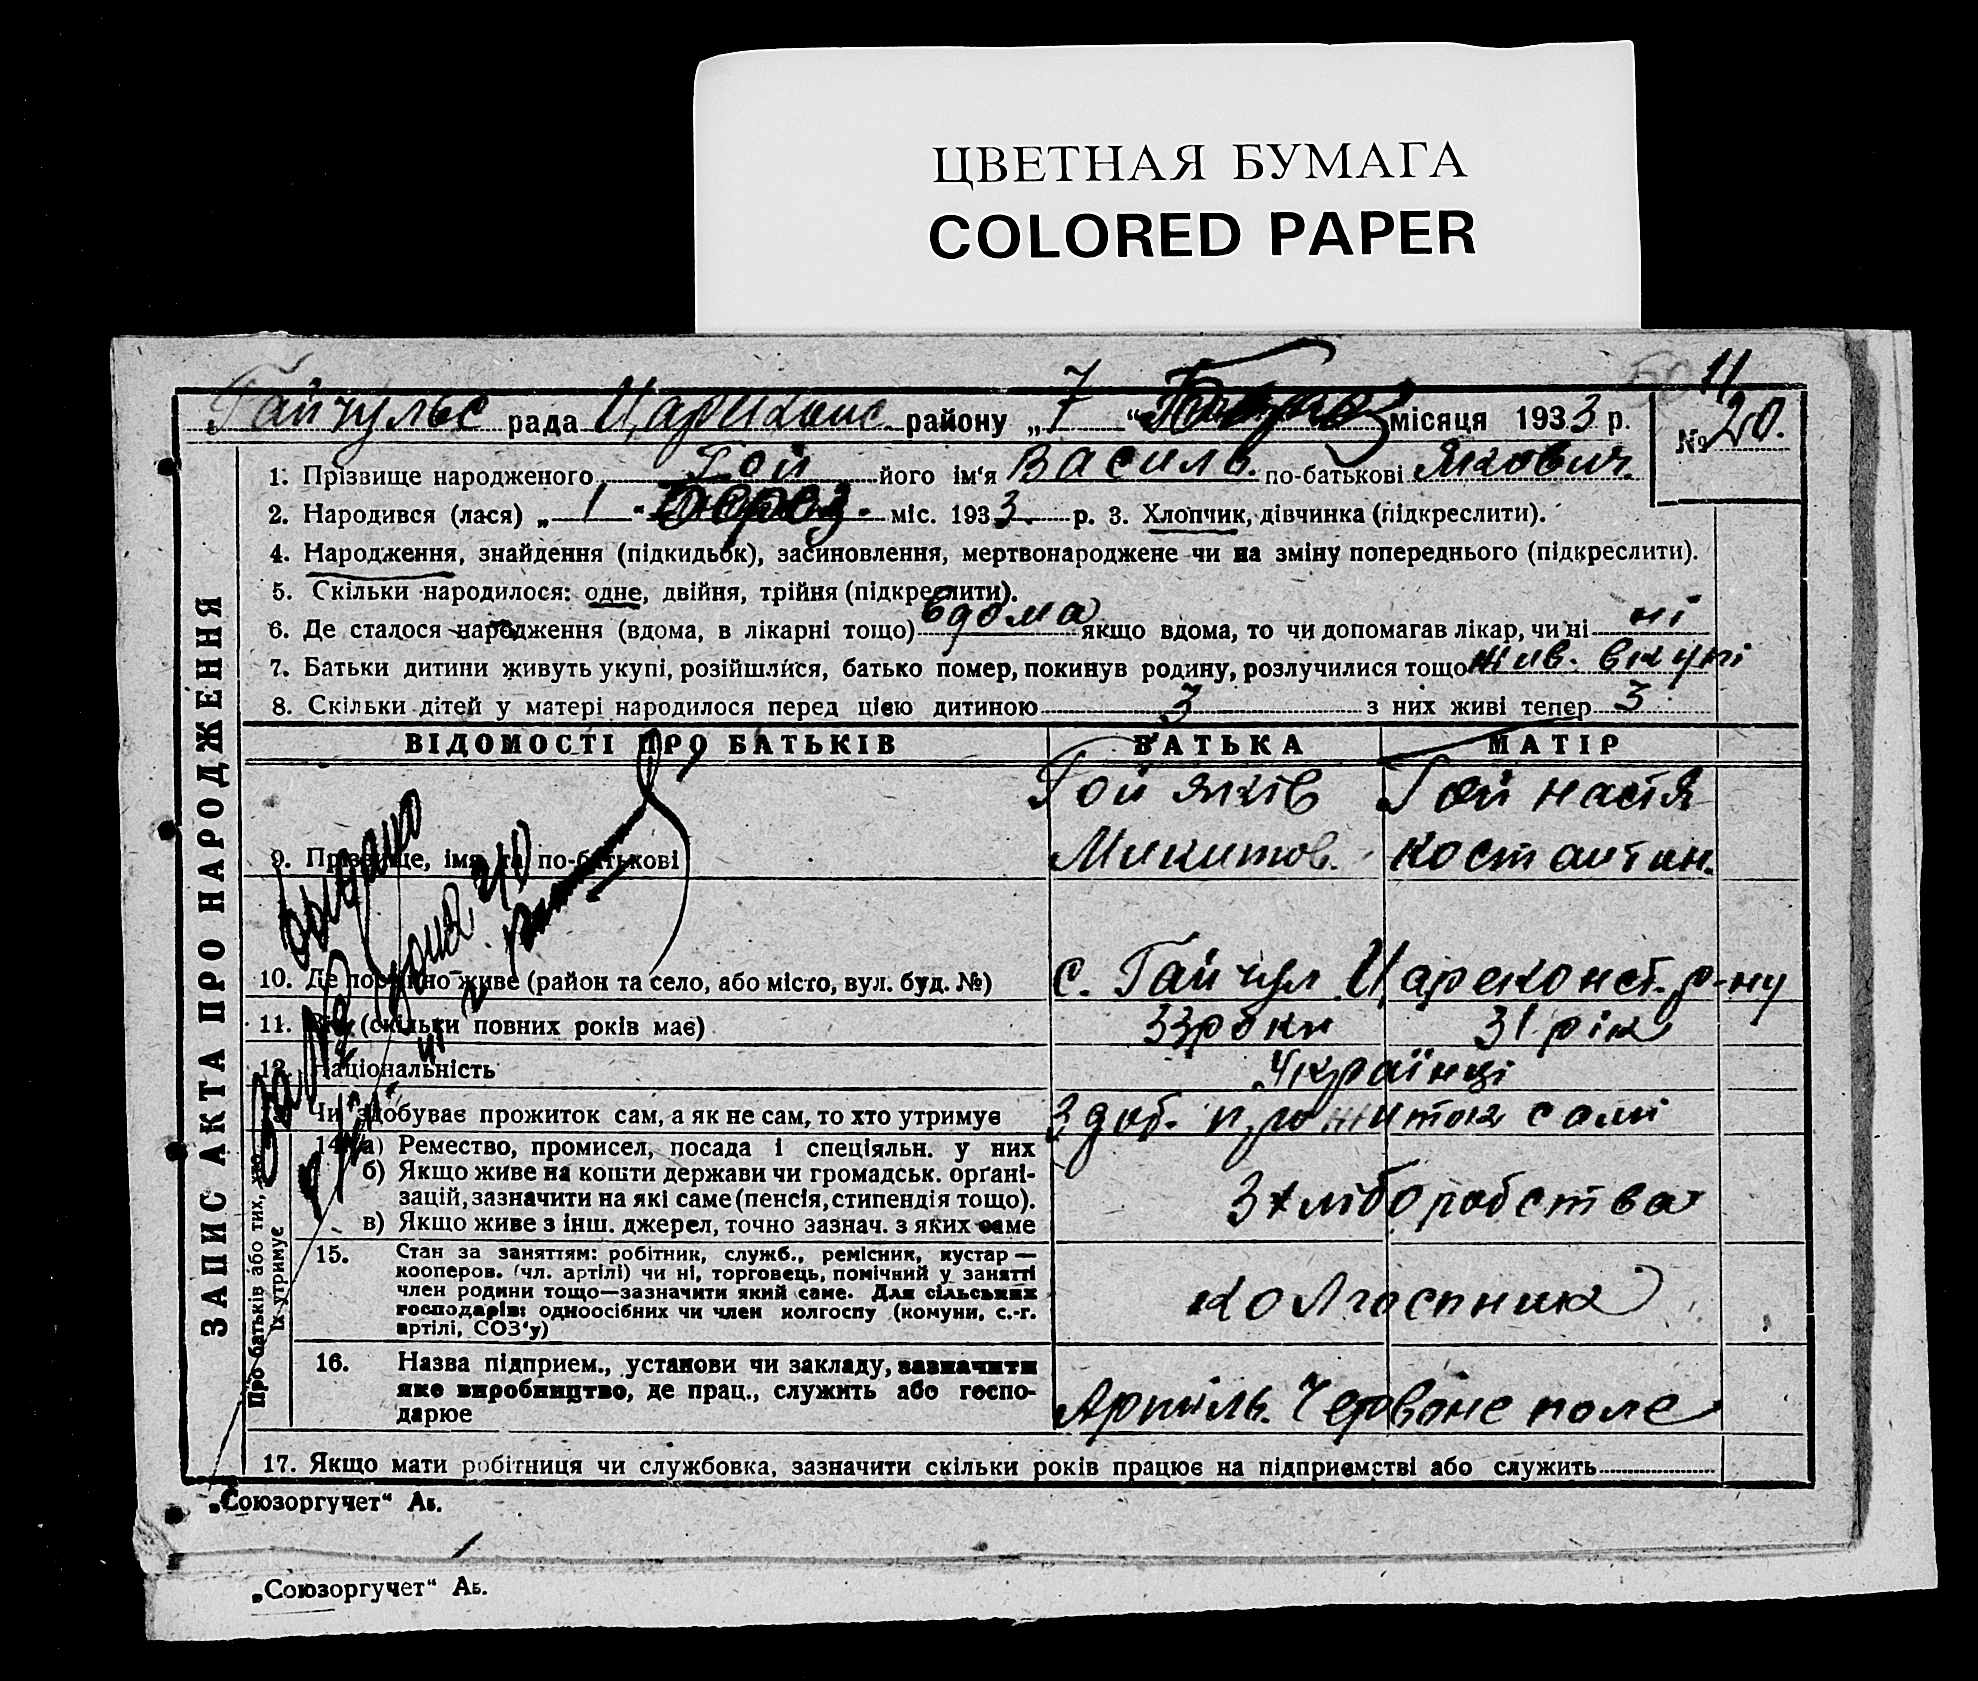 ЦВЕТНАЯ БУМАГА
COLORED PAPER
11
Гайчульс рада Царикнс району „7 “ Берез місяця 1933 р.
№ 20.
1. Прізвище народженого Гой його ім‘я Василь. по-батькові Якович.
2. Народився (лася) „ 1 “ Берез. міс. 1933. р. 3. Хлопчик, дівчинка (підкреслити).
4. Народження, знайдення (підкидьок), засиновлення, мертвонароджене чи на зміну попереднього (підкреслити).
5. Скільки народилося: одне, двійня, трійня (підкреслити).
6. Де сталося народження (вдома, в лікарні тощо) вдома якщо вдома, то чи допомагав лікар, чи ні ні
7. Батьки дитини живуть укупі, розійшлися, батько помер, покинув родину, розлучилися тощо жив. вкупі
8. Скільки дітей у матері народилося перед цією дитиною 3 з них живі тепер 3
ВІДОМОСТІ ПРО БАТЬКІВ БАТЬКА МАТІР
Гой Яків Гой Настя
9. Прізвище, імя та по-батькові Микитов. Костантин.
10. Де постійно живе (район та село, або місто, вул. буд. №) с. Гайчул Цареконст. р-ну
11. Вік (скільки повних років має) 33 роки 31 рік
12. Національність Українці
Чи здобуває прожиток сам, а як не сам, то хто утримує Здоб. прожиток самі
14. а) Ремество, промисел, посада і спеціяльн. у них
б) Якщо живе на кошти держави чи громадськ. органі-
зацій, зазначити на які саме (пенсія, стипендія тощо).
в) Якщо живе з інш. джерел, точно зазнач. з яких саме
З хліборобства
15. Стан за заняттям: робітник, служб., ремісник, кустар —
кооперов. (чл. артілі) чи ні, торговець, помічний у занятті
член родини тощо—зазначити який саме. Для сільських
господарів: одноосібних чи член колгоспу (комуни, с.-г.
артілі, СОЗ‘у)
колгоспник
16. Назва підприєм., установи чи закладу, зазначити
яке виробництво, де прац., служить або госпо-
дарює
Артиль. Червоне поле
17. Якщо мати робітниця чи службовка, зазначити скільки років працює на підприємстві або служить
ЗАПИС АКТА ПРО НАРОДЖЕННЯ
Про батьків або тих, хто
їх утримує
„Союзоргучет“ Аь.
„Союзоргучет“ Аь.